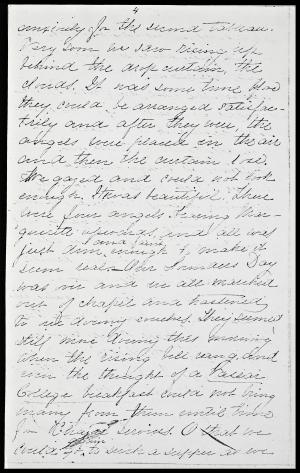 4
anxiety for the second tableau.
Very soon we saw rising up
behind the drop curtain, the
clouds. It was some time before
they could be arranged satisfac-
torily and after they were, the
angels were placed in the air
and then the curtain rose.
We gazed and could not look
enough. It was beautiful. There
were four angels bearing Mar-
guerite upwards, and all was
just dim enough to make it
seem real. Our Founder's Day
was in and we all marched
out of chapel and hastened
to our downy couches. They seemed
still more downy this morning
when the rising bell rang, and
even the thought of a Vassar
College breakfast could not bring
many from them until time
for service. O that we
could sit to such a supper as we